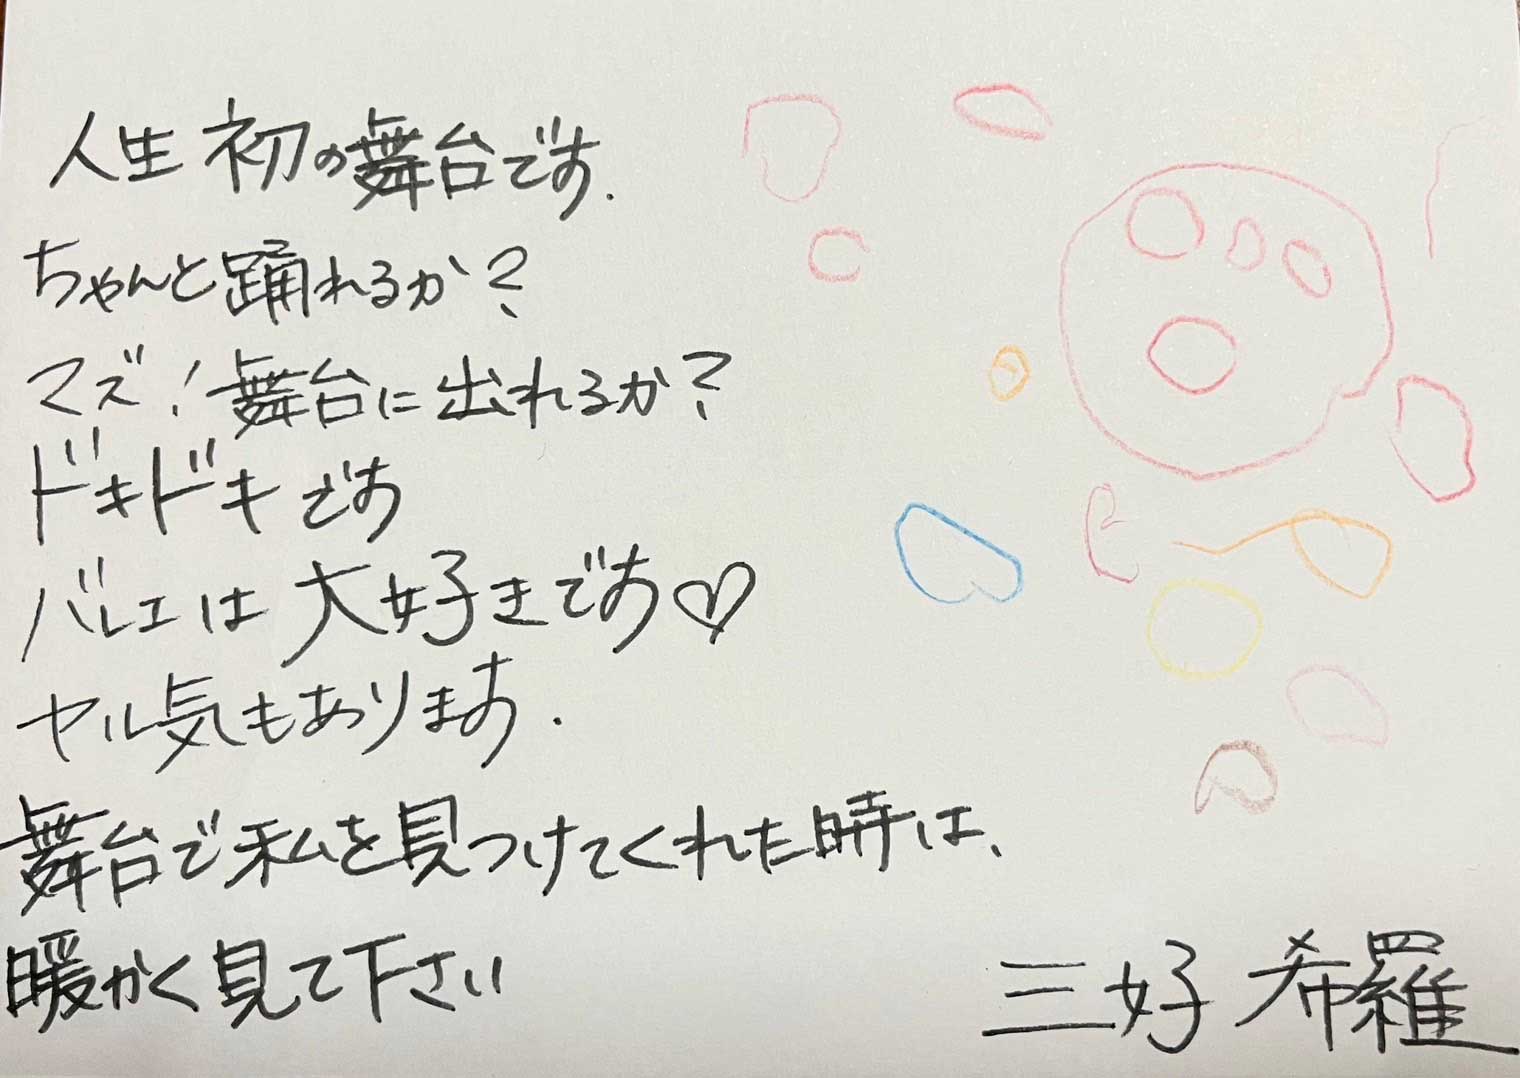 人生初の舞台です.
ちゃんと踊れるか?
マズ!舞台に出れるか?
ドキドキです
バレエは大好きです♡
ヤル気もあります.
舞台で私を見つけてくれた時は、
暖かく見て下さい
三好 希羅